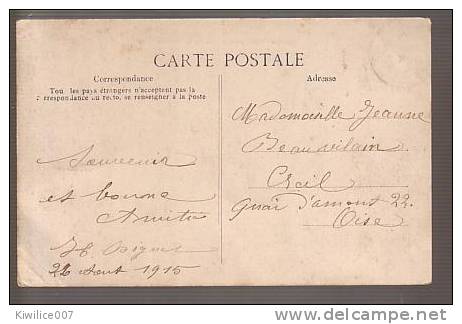 CARTE POSTALE
Correspondance
Tous les pays étrangers n'acceptent pas la
correspondance au recto, se renseigner à la poste
Souvenir
et bonne
Amitié
22 Aout 1915
Adresse
Mademoiselle Jeanne
Beauvilain
Creil
Quai d'amont 22.
Oise
Kiwilice007
www.delcampe.net